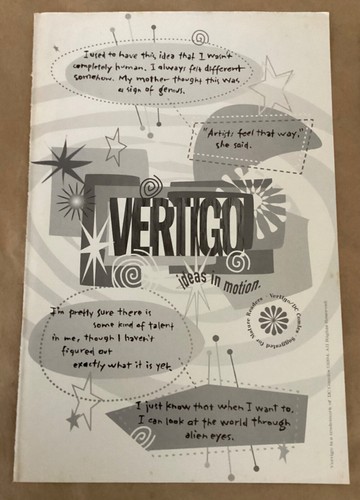 I used to have this idea that I wasn't
completely human. I always felt different
somehow. My mother thought this was
a sign of genius.
"Artists feel that way,"
she said.
VERTIGO
ideas in motion.
I'm pretty sure there is
some kind of talent
in me, though I haven't
figured out
exactly what it is yet.
Suggested for Mature Readers · Vertigo/DC Comics
I just know that when I want to,
I can look at the world through
alien eyes.
Vertigo is a trademark of DC Comics ©1994. All Rights Reserved.